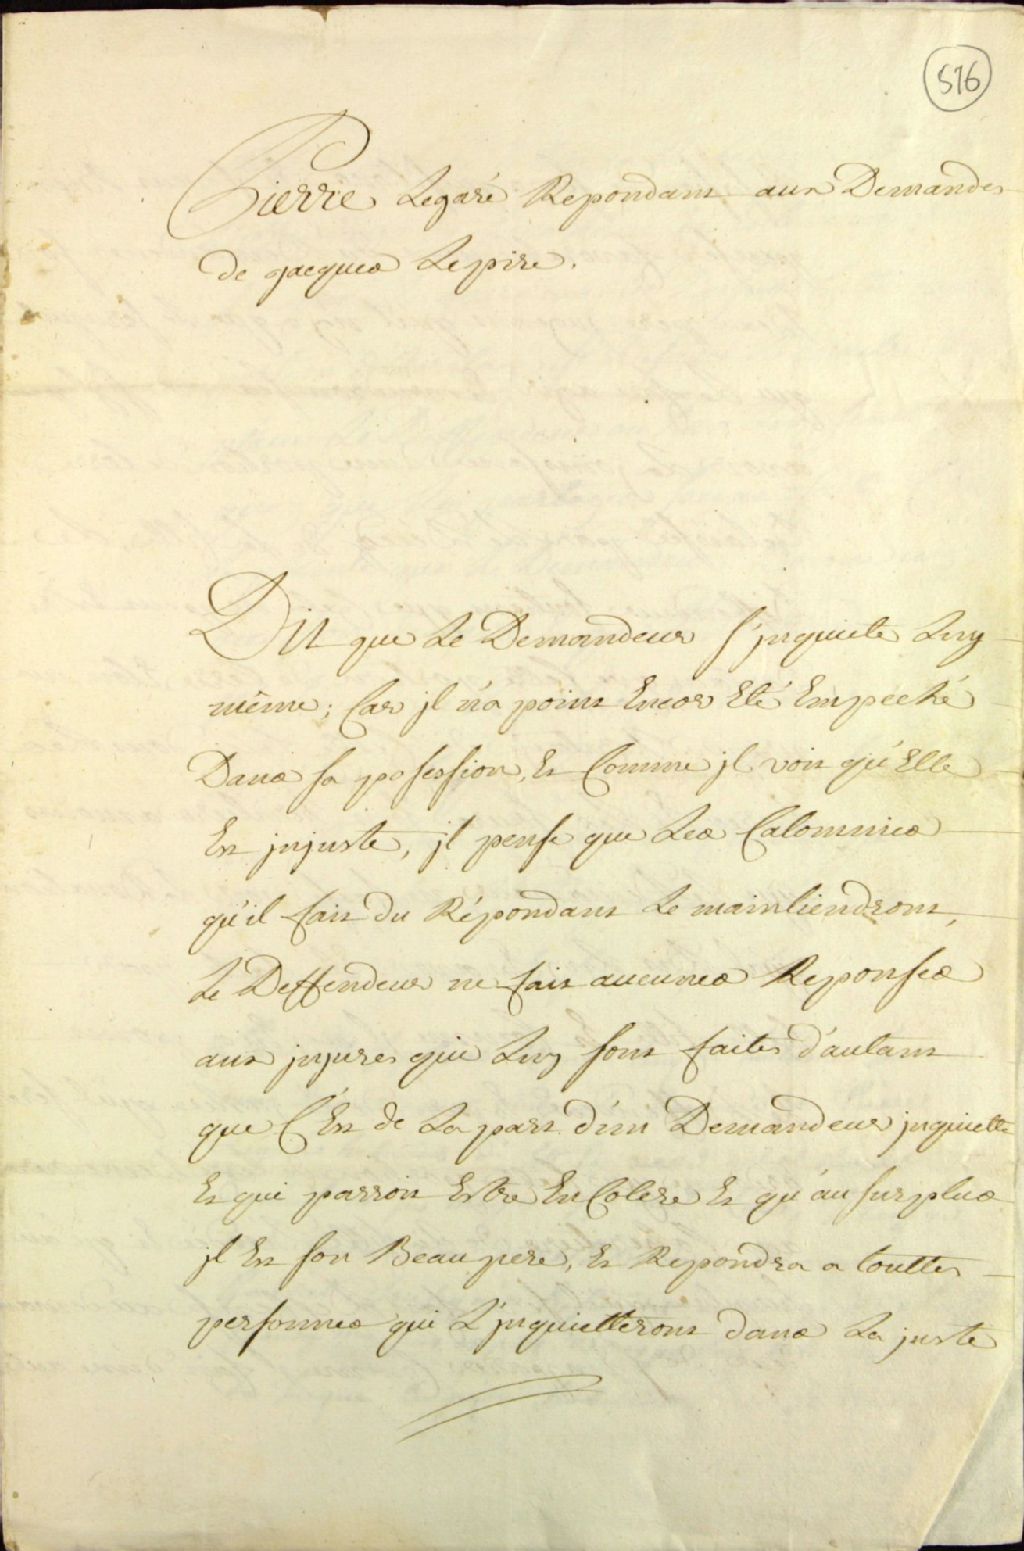 516
Pierre Legaré Repondant aux Demandes
de jacques Lepire.
Dit que Le Demandeur s'jnquiete Luy
même; Car jl n'a point Encor Eté Empeché
Dans sa possession, Et Comme jl voit qu'Elle
Est jnjuste, jl pense que Les Calomnies
qu'il fait du Répondant Le maintiendront,
Le Deffendeur ne fait aucunes Reponses
aux jnjures qui Luy sont faites d'autant
que C'Est de La part d'un Demandeur jnquiette
Et qui parroit Estre En Colere Et qu'au surplus
jl Est son Beaupere, Et Repondra a touttes
personnes qui L'jnquietteront dans La juste